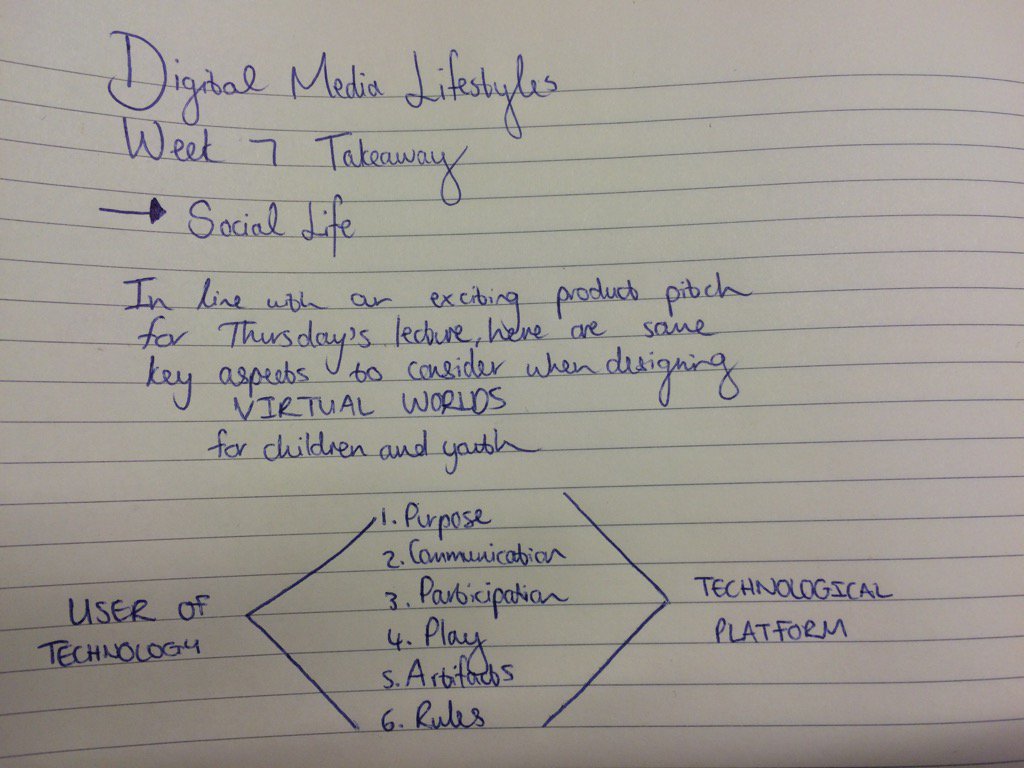 Digital Media Lifestyles
Week 7 Takeaway
→ Social Life
In line with an exciting product pitch
for Thursday's lecture, here are some
key aspects to consider when designing
VIRTUAL WORLDS
for children and youth
1. Purpose
2. Communication
3. Participation
4. Play
5. Artifacts
6. Rules
USER OF
TECHNOLOGY
TECHNOLOGICAL
PLATFORM